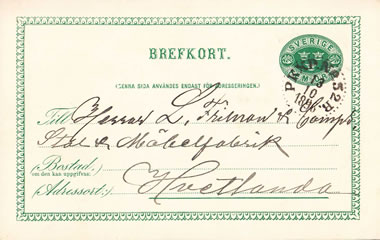 SVERIGE
BREFKORT.
(DENNA SIDA ANVÄNDES ENDAST FÖR ADRESSERINGEN.)
Till Herrar L. & Comp
Stol & Möbelfabrik
(Bostad.)
om den kan uppgifvas.
(Adressort:) Hvetlanda